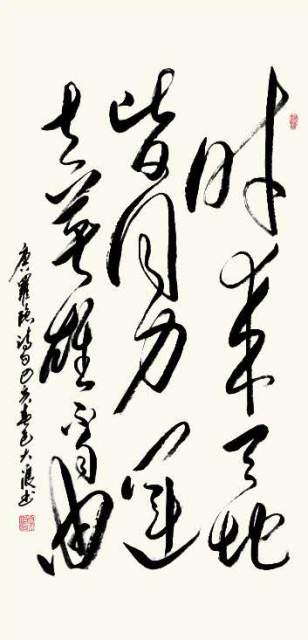 时来天地
皆同力運
去英雄不自由
唐羅隐诗句己亥春大浪书